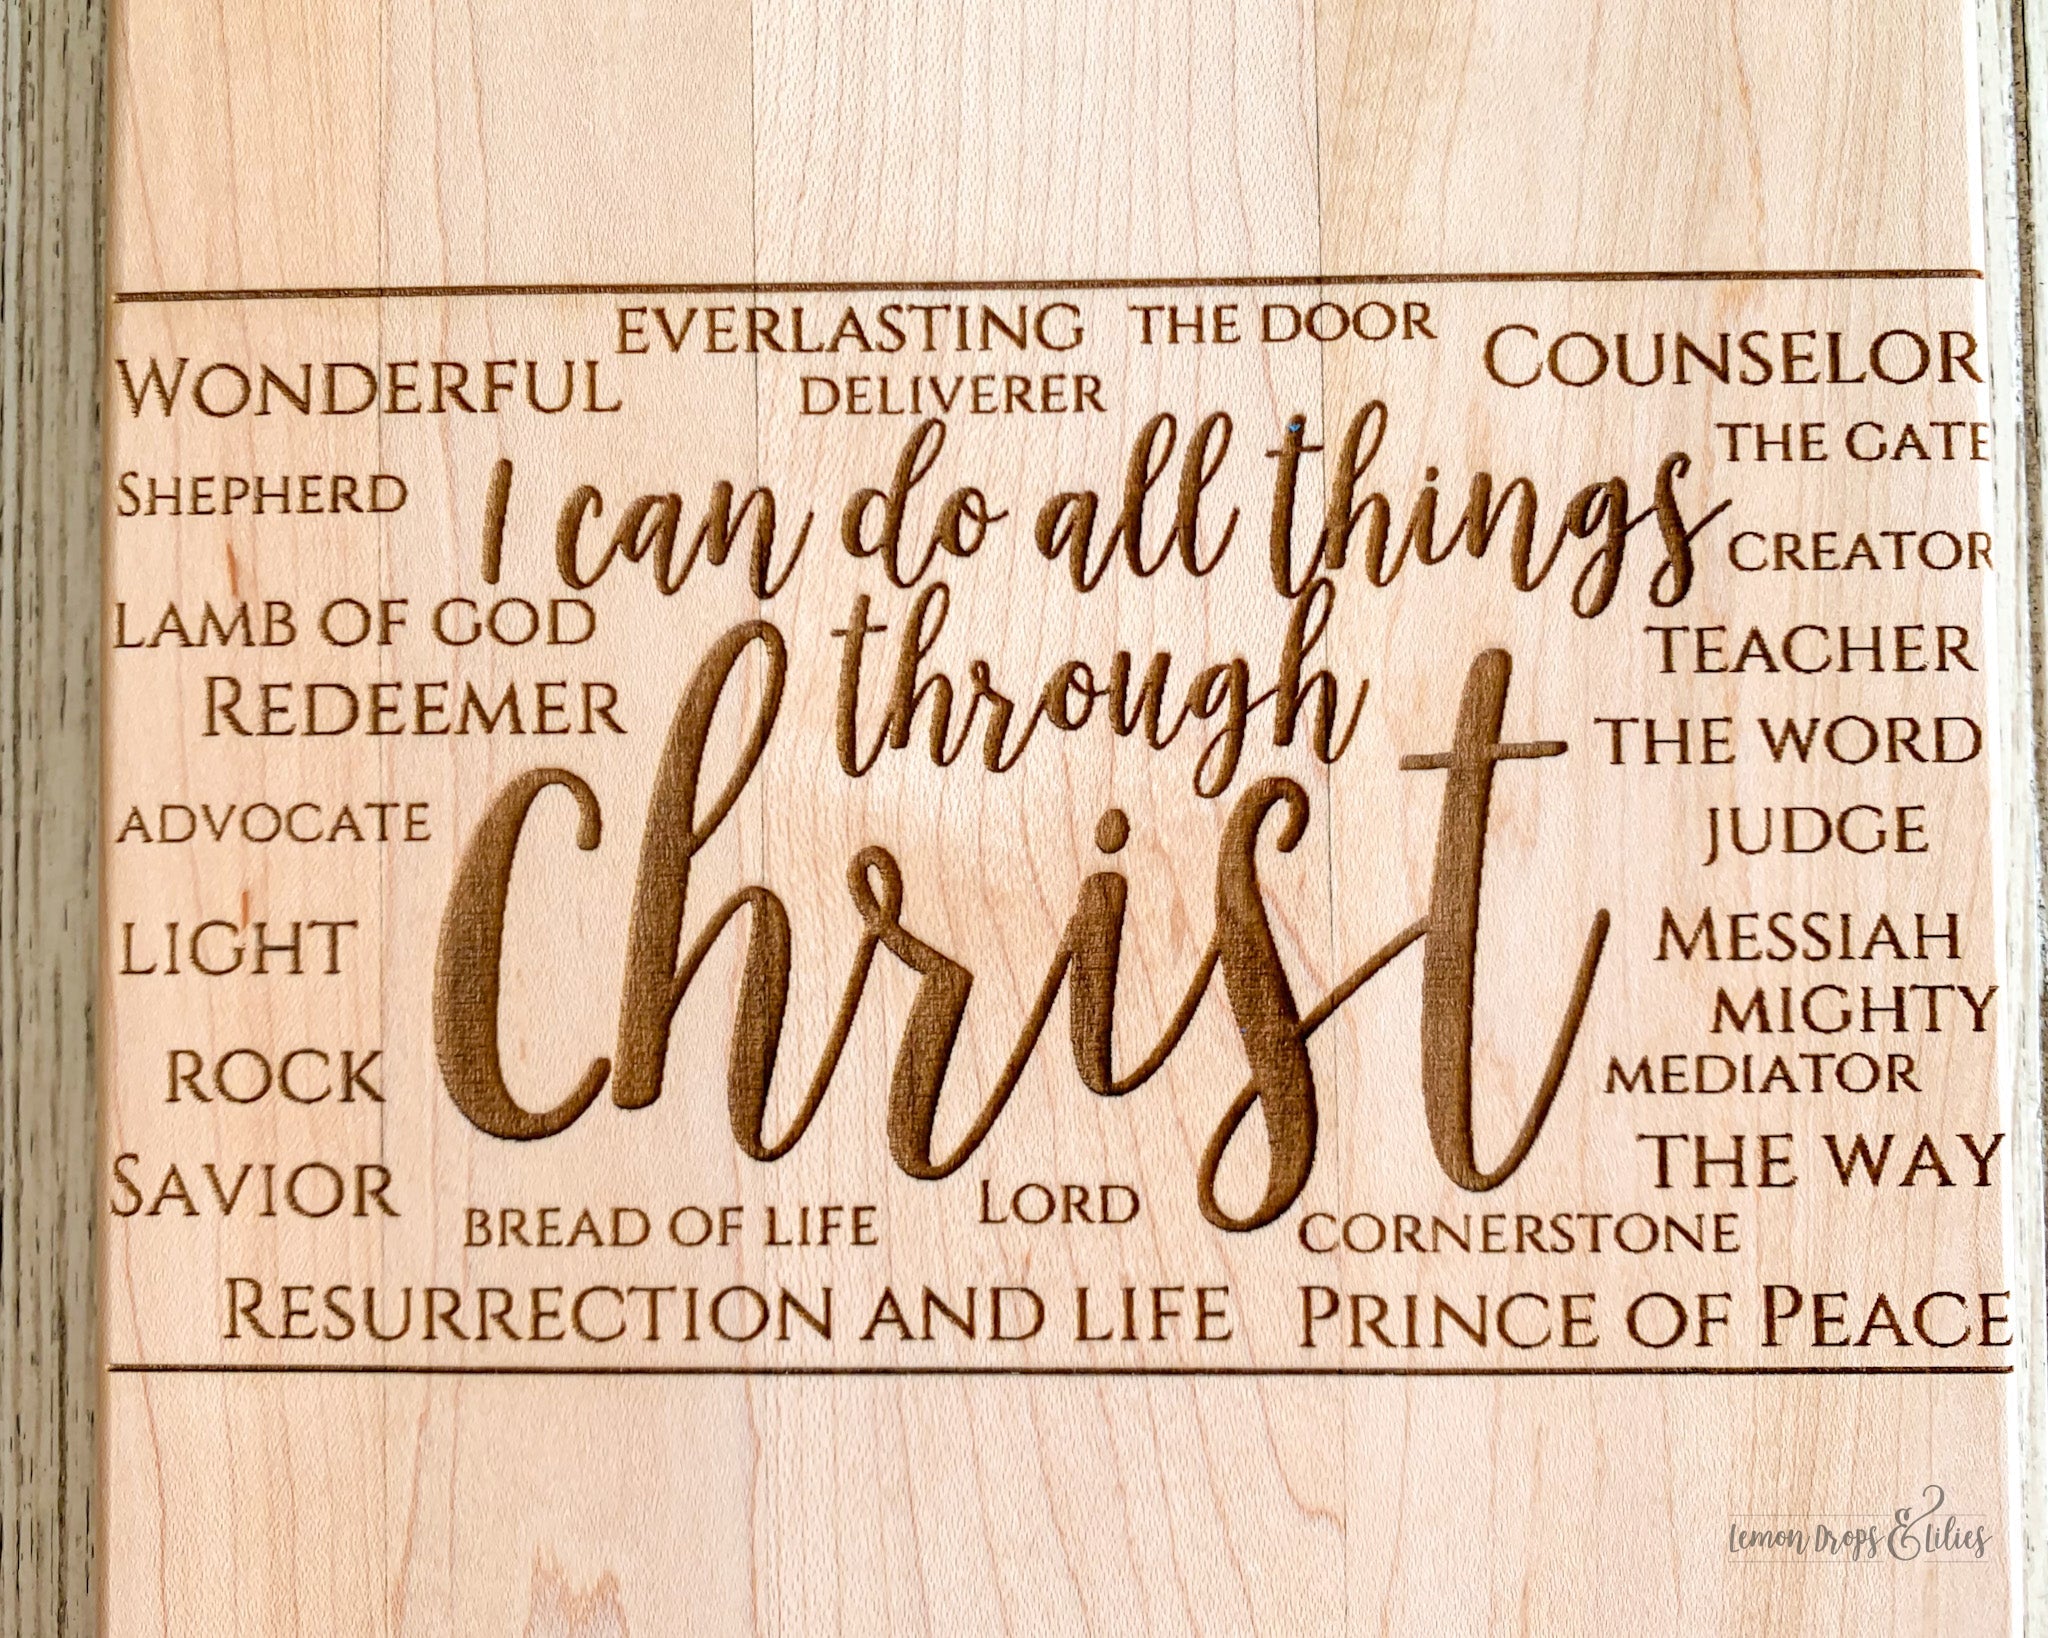 EVERLASTING THE DOOR
WONDERFUL
COUNSELOR
DELIVERER
THE GATE
SHEPHERD
I can do all things
CREATOR
LAMB OF GOD
through
TEACHER
REDEEMER
THE WORD
Christ
ADVOCATE
JUDGE
LIGHT
MESSIAH
MIGHTY
ROCK
MEDIATOR
SAVIOR
THE WAY
BREAD OF LIFE
LORD
CORNERSTONE
RESURRECTION AND LIFE PRINCE OF PEACE
Lemon Drops & Lilies